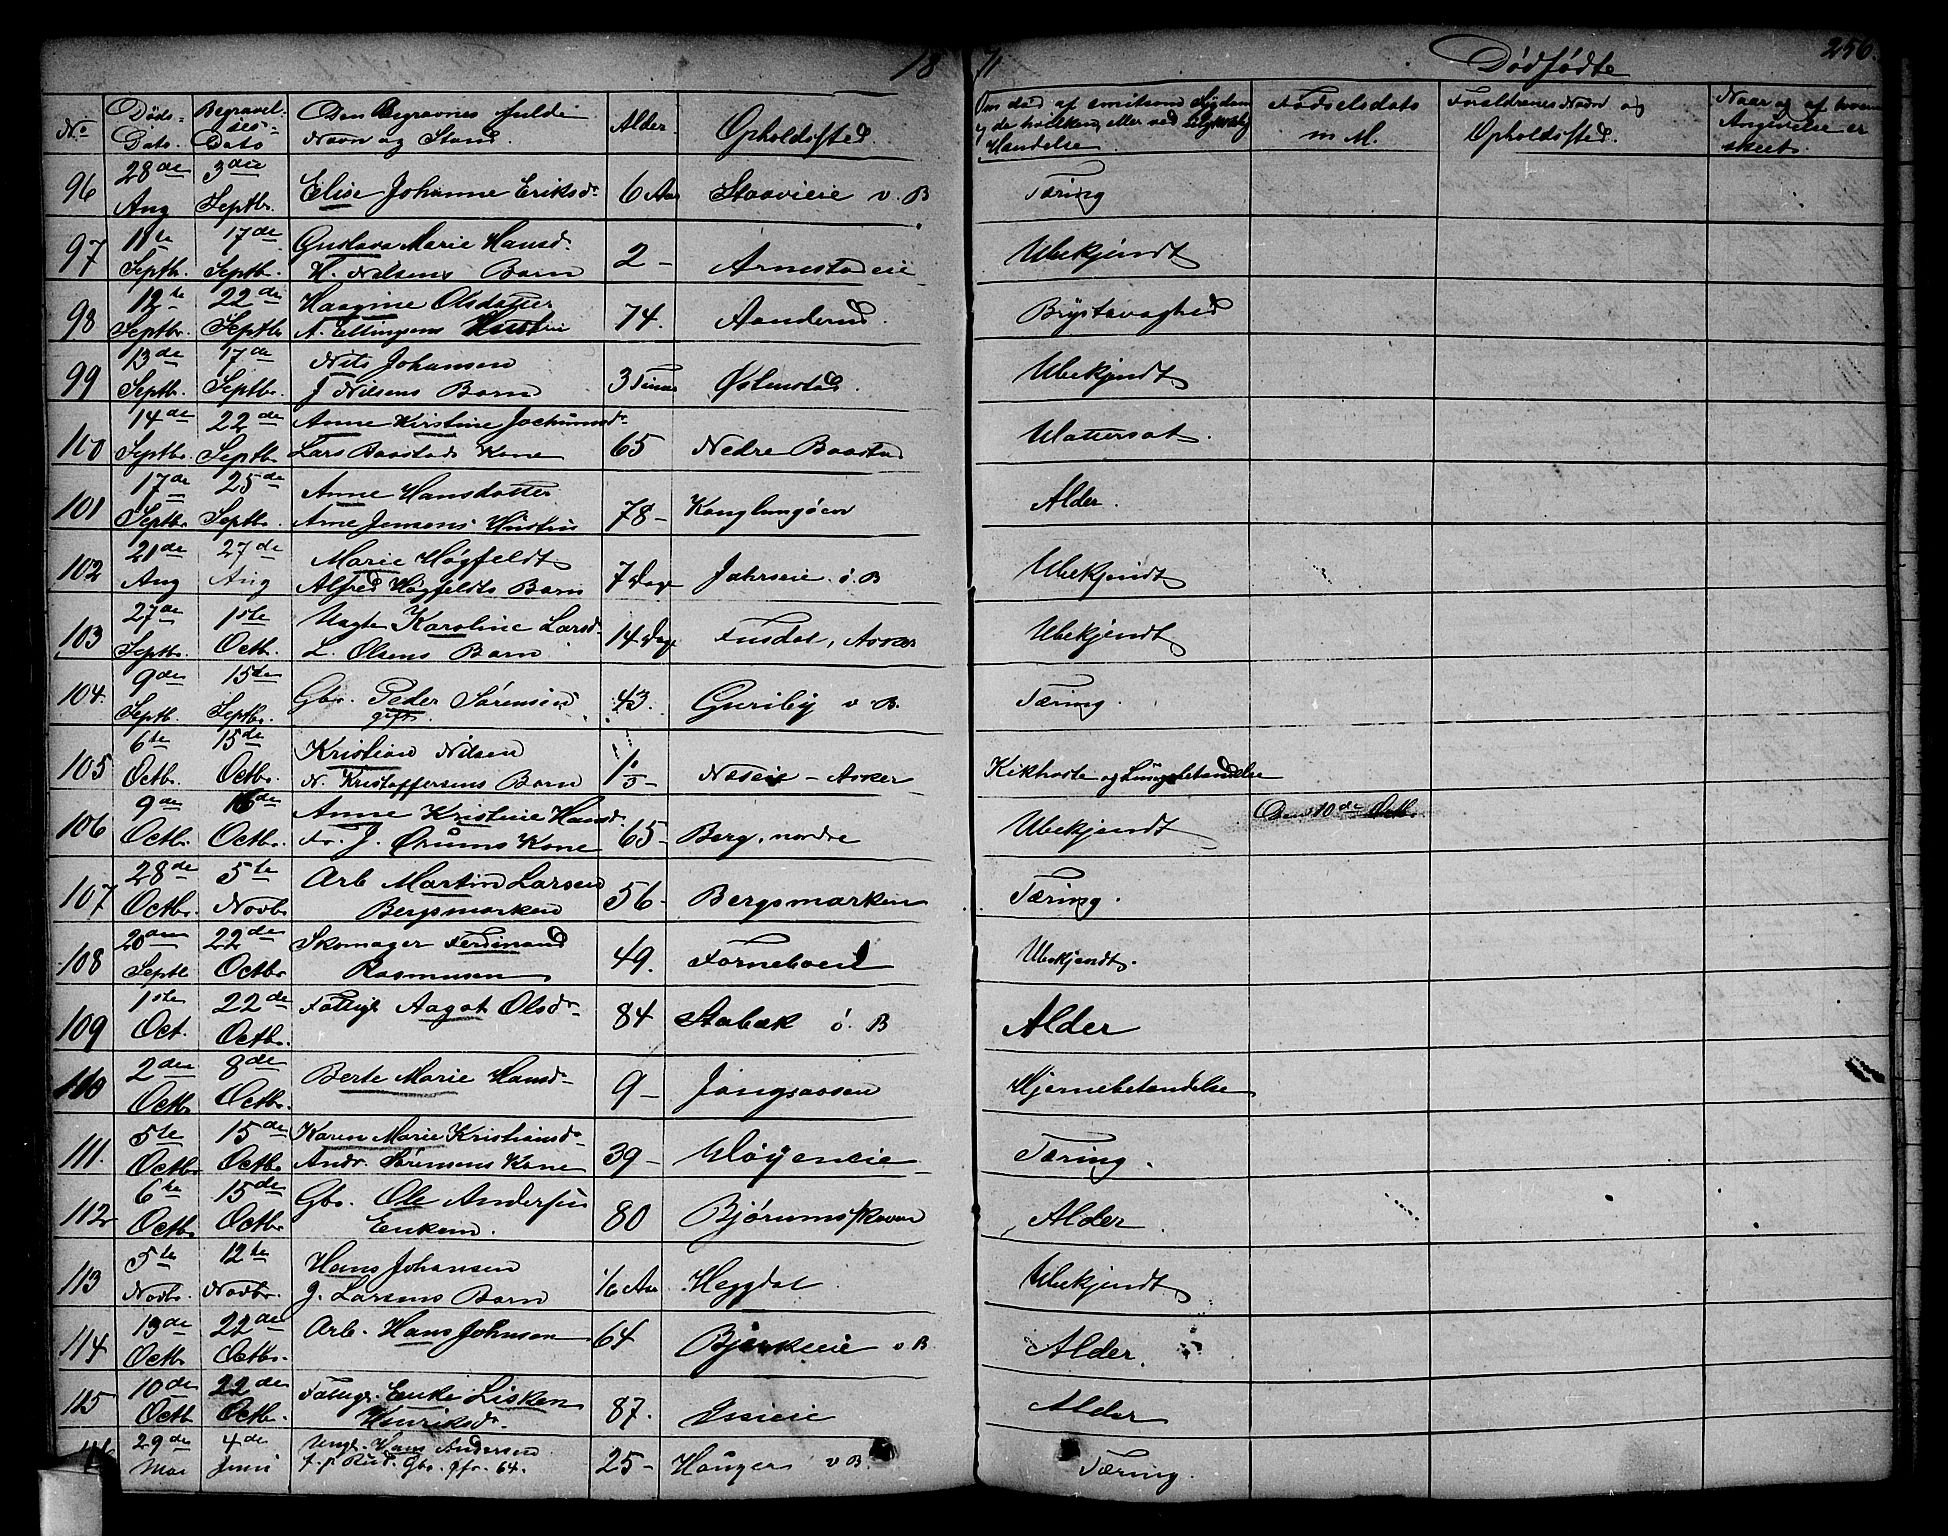 18 71 Dødfødte 256.
No Døds- Dato. Begravel- ses- Dato Den Begravnes fulde Navn og Stand. Alder. Opholdssted. Om død af smitsom Sygdom og da hvilken, eller ved ulykkelig Hændelse. Fødselsdato m M. Forældrenes Navn og Opholdssted. Naar og af hvem Angivelse er skeet.
96 28de Aug 3die Septbr. Elise Johanne Eriksdr 6 Aar v. B Tæring
97 11te Septbr. 17de Septbr. Gustava Marie Hansd.
H. Nilsens Barn 2 - Arnestadeie Ubekjendt
98 12te Septbr. 22de Septbr Haagine Olsdatter
A. Ellingsens Hustru 74. Aanderud Brystsvaghed
99 13de Septbr. 17de Septbr. Nils Johansen
J Nilsens Barn 3 Timer Østenstad. Ubekjendt
100 14de Septbr. 22de Septbr Anne Kirstine Jochumsdr
Lars Baastads Kone 65 Nedre Baastad Vattersot.
101 17de Septbr. 25de Septbr. Anne Hansdatter
Arne Jensens Hustru 78 - Alder.
102 21de Aug 27de Aug Marie Høgfeldt
Alfred Høgfeldts Barn 7 Dage Jahrseie. ø. B Ubekjendt
103 27de Septbr. 1ste Octbr. Karoline Larsd.
L. Olsens Barn 14 Dage Fusdal, Asker Ubekjendt
104. 9de Septbr. 15de Septbr. Gbr. Peder Sørensen
gift 43. Guriby v. B. Tæring.
105 6te Octbr. 15de Octbr. Kristian Nilsen
N. Kristoffersens Barn Neseie - Asker Kikhoste og Lungebetændelse
106 9de Octbr. 16de Octbr. Anne Kristine Hansd.
Fr. J. Ørums Kone 65 - Berg, nordre Ubekjendt 10de Octbr.
107 28de Octbr. 5te Novbr Arb Martin Larsen
Bergsmarken 56 - Bergsmarken Tæring.
108 20de Septbr 22de Octbr Skomager Ferdinand
Rasmusen 49. Forneboeie Ubekjendt.
109 1ste Oct. 22de Octbr. Fattigl Aagot Olsdr 84 Stabæk ø. B Alder
110 2den Octbr 8de Octbr. Berte Marie Hansd. 9 - Jongsaasen Hjernebetændelse
111. 5te Octbr. 15de Octbr. Karen Marie Kristiansdr
Andr. Sørensens Kone 39 - Vøyeneie Tæring.
112 6te Octbr. 15de Octbr. Gbr. Ole Andersen
Enkem. 80 Bjørumskoven Alder
113 5te Novbr. 12te Novbr. Hans Johansen
J. Larsens Barn Heggdal Ubekjendt
114 13de Octbr 22de Octbr. Arb. Hans Johnsen 64 Bjerkeeie v B Alder.
115 10de Octbr 22de Octbr. Fattigl. Enke Lisken
Henriksdr. 87. Alder
116 29de Mai 4de Juni Ungk. Hans Andersen
f. p. Rud. Gbr. 64. 25 - Hauger v B. Tæring.